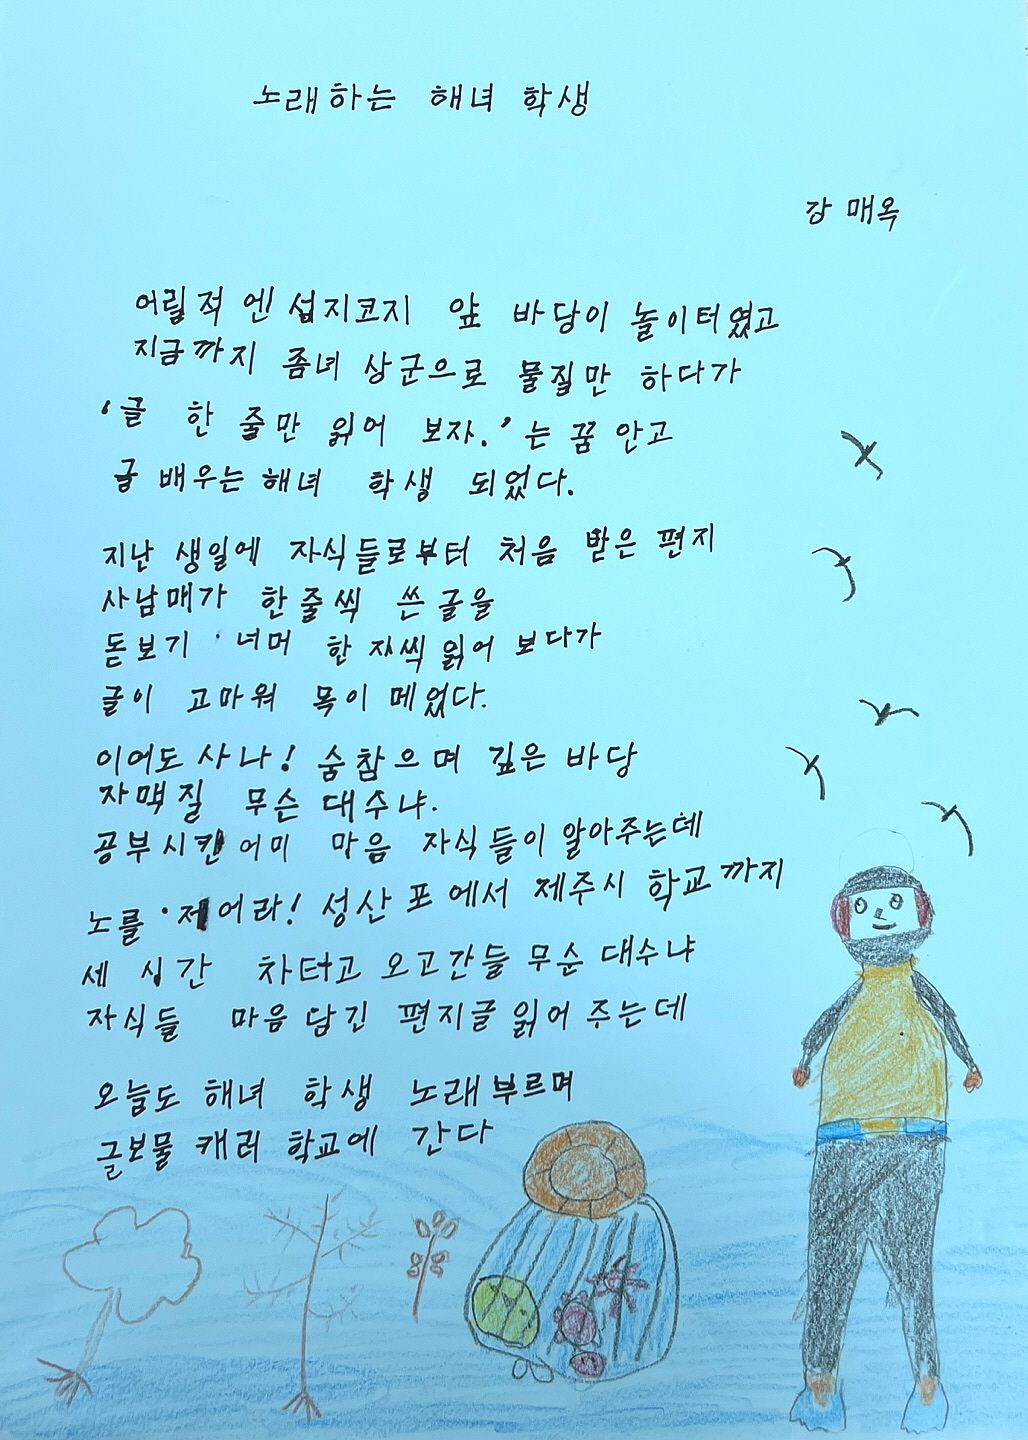 노래하는 해녀 학생
강 매옥
어릴적 엔 섭지코지 앞 바당이 놀이터였고
지금까지 좀녀 상군으로 물질만 하다가
'글 한 줄만 읽어 보자.'는 꿈 안고
글 배우는 해녀 학생 되었다.
지난 생일에 자식들로부터 처음 받은 편지
사남매가 한줄씩 쓴 글을
돋보기 너머 한 자씩 읽어 보다가
글이 고마워 목이 메었다.
이어도 사나! 숨참으며 깊은 바당
자맥질 무슨 대수냐.
공부시킨 어미 마음 자식들이 알아주는데
노를 제어라! 성산포에서 제주시 학교까지
세 시간 차타고 오고간들 무슨 대수냐
자식들 마음담긴 편지글 읽어 주는데
오늘도 해녀 학생 노래부르며
글보물 캐러 학교에 간다